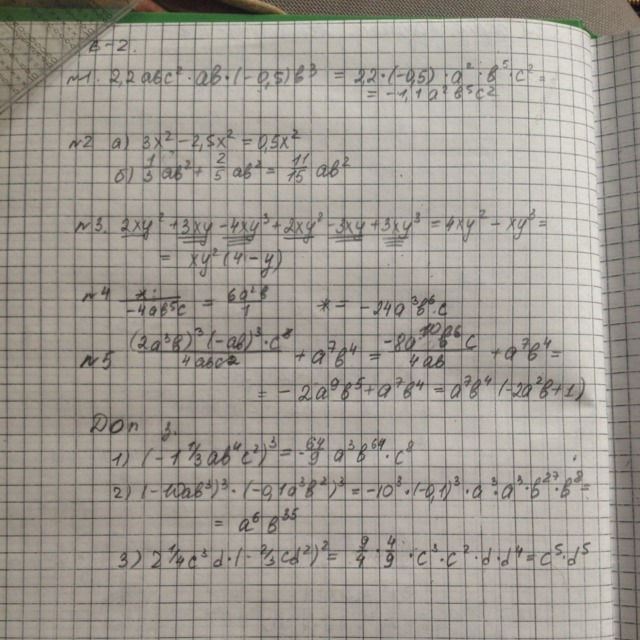 В-2.
№1. 2,2abc² · ab · (-0,5)b³ = 2,2 · (-0,5) · a² · b⁵ · c² =
= -1,1a²b⁵c²
№2 а) 3x² - 2,5x² = 0,5x²
б) 1/3 ab² + 2/5 ab² = 11/15 ab²
№3. 2xy² + 3xy - 4xy³ + 2xy² - 3xy + 3xy³ = 4xy² - xy³ =
= xy² (4 - y)
№4 */(-4ab⁵c) = 6a²b/1 * = -24a³b⁶·c
№5 (2a³b)³(-ab)³·c²/4abc² + a⁷b⁴ = + a⁷b⁴ =
= -2a⁹b⁵ + a⁷b⁴ = a⁷b⁴ (-2a²b + 1)
Доп з.
1) (-1 1/3 ab⁴c²)³ = -64/9 a³b⁶⁴·c⁸
2) (-10ab³)³ · (-0,1a³b²)³ = -10³·(-0,1)³·a³·a³·b²⁷·b⁸ =
= a⁶b³⁵
3) 2 1/4 c³d · (-2/3cd²)² = 9/4 · 4/9 · c³·c²·d·d⁴ = c⁵·d⁵